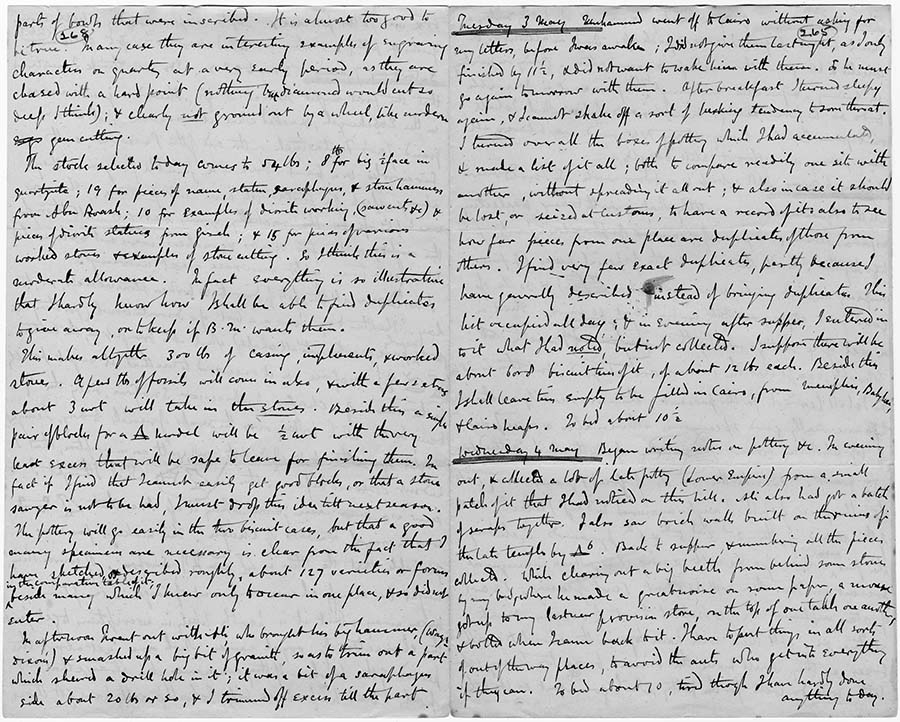 268
parts of bowls that were inscribed. It is almost too good to
be true. In any case they are interesting examples of engraving
characters on quartz at a very early period, as they are
chased with a hard point (nothing but diamond would cut so
deep I think); & clearly not ground out by a wheel, like modern
gem cutting.
The stock selected today comes to 54 lbs; 8 for big face in
quartzite; 19 for pieces of name, statue, sarcophagus, & stone hammers
from Abu Roash; 10 for examples of diorite working (saw cuts &c) &
pieces of diorite statues from Gizeh; & 15 for pieces of various
worked stones & examples of stone cutting. So I think this is a
moderate allowance. In fact everything is so illustrative
that I hardly know how I shall be able to find duplicates
to give away, or to keep if B. M. wants them.
This makes altogether 300 lbs of casing, implements, & worked
stones. A few lbs of fossils will come in also, & with a few extras
about 3 cwt will take in the stones. Beside this a single
pair of blocks for a Δ model will be ½ cwt with the very
least excess that will be safe to leave for finishing them. In
fact if I find that I cannot easily get good blocks, or that a stone
sawyer is not to be had, I must drop this idea till next season.
The pottery will go easily in the two biscuit cases, but that a good
many specimens are necessary is clear from the fact that I
have sketched & described roughly, about 127 varieties or forms
in the comparative table of it,
beside many which I knew only to occur in one place, & so did not
enter.
In afternoon I went out with Ali who brought his big hammer, (Waynman
Dixon's) & smashed up a big bit of granite, so as to trim out a part
which shewed a drill hole in it; it was a bit of a sarcophagus
side about 20 lbs or so, & I trimmed off excess till the part
265
Tuesday 3 May Muhammed went off to Cairo without asking for
my letters, before I was awake; I did not give them last night, as I only
finished by 11½, & did not want to wake him with them. So he must
go again tomorrow with them. After breakfast I turned sleepy
again, & I cannot shake off a sort of husking tendency to sore throat.
I turned over all the boxes of pottery which I had accumulated,
& made a list of it all; both to compare readily one site with
another, without spreading it all out; & also in case it should
be lost or seized at Customs, to have a record of it & also to see
how far pieces from one place are duplicates of those from
others. I find very few exact duplicates, partly because I
have generally described instead of bringing duplicates. This
list occupied all day; & in evening after supper, I entered in
to it what I had noted, but not collected. I suppose there will be
about 6 or 8 biscuit tins of it, of about 12 lbs each. Beside this
I shall leave tins empty to be filled in Cairo, from Memphis, Babylon,
& Cairo heaps. To bed about 10½
Wednesday 4 May Began writing notes on pottery &c. In evening
out, & collected a lot of late pottery (Lower Empire) from a small
patch of it that I had noticed on this hill. Ali also had got a batch
of scraps together. I also saw brick walls built on the ruins of
the late temple by Δ 6. Back to supper, & numbering all the pieces
collected. While clearing out a big beetle from behind some stones
by my bed, where he made a great noise on some paper, a mouse
got up to my last new provision store, on the top of one table on another,
& bolted when I came back to it. I have to put things in all sorts
of out of the way places, to avoid the ants who get into everything
if they can. To bed about 10, tired though I have hardly done
anything today.